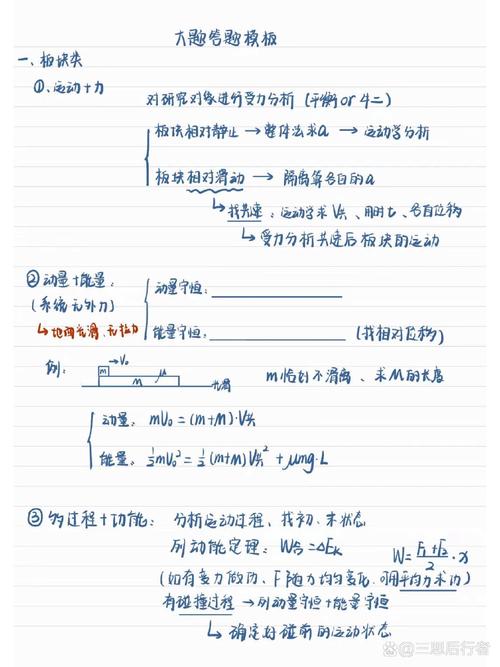 大题答题模板
一、板块类
①、运动+力
对研究对象进行受力分析（平衡or牛二）
板块相对静止 → 整体法求a → 运动学分析
板块相对滑动 → 隔离算各自的a
↳ 找共速：运动学求V共、用时t、各自位移
↳ 受力分析共速后板块的运动
②动量+能量：
（系统无外力）
↳ 地面光滑、无拉力
动量守恒：
能量守恒： （找相对位移）
例： m →V₀ μ M 光滑
m恰好不滑离、求M的长度
动量：mV₀=(m+M)·V共
能量：½mV₀²=½(m+M)V共²+μmg·L
③多过程+功能： 分析运动过程、找初、末状态
列动能定理：W总=ΔEk W=(F₁+F₂)/2·x
（如有变力做功、F随力均匀变化、可用平均力求功）
有碰撞过程 → 列动量守恒+能量守恒
↳ 确定好碰前的运动状态
@三思后行者